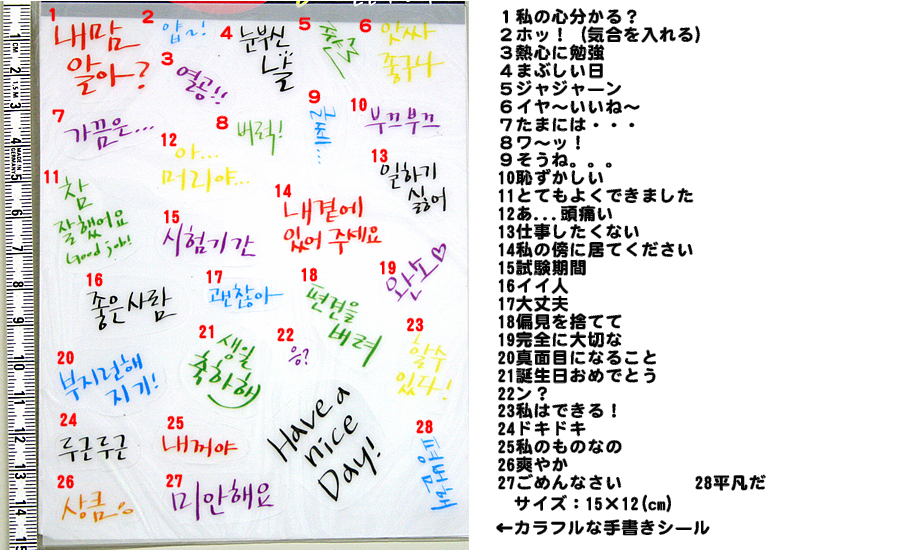 1
내맘
알아?
2
얍!
3
열공!!
4
눈부신
날
5
6
앗싸
좋구나
7
가끔은...
8
버럭!
9
글쎄...
10
부끄부끄
11
참
잘했어요
Good job!
12
아...
머리야...
13
일하기
싫어
14
내곁에
있어 주세요
15
시험기간
16
좋은사람
17
괜찮아
18
편견을
버려
19
완소♡
20
부지런해
지기!
21
생일
축하해
22
응?
23
할수
있다!
24
두근두근
25
내꺼야
26
상큼
27
미안해요
28
평범해
Have a
nice
Day!
1私の心分かる?
2ホッ!(気合を入れる)
3熱心に勉強
4まぶしい日
5ジャジャーン
6イヤ～いいね～
7たまには・・・
8ワ～ッ!
9そうね。。。
10恥ずかしい
11とてもよくできました
12あ...頭痛い
13仕事したくない
14私の傍に居てください
15試験期間
16イイ人
17大丈夫
18偏見を捨てて
19完全に大切な
20真面目になること
21誕生日おめでとう
22ン?
23私はできる!
24ドキドキ
25私のものなの
26爽やか
27ごめんなさい 28平凡だ
サイズ:15×12(cm)
←カラフルな手書きシール